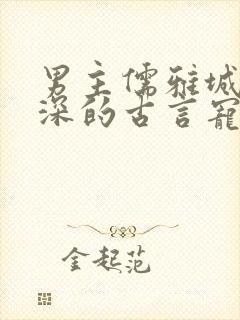 男主儒雅城
深的古言宠
金起范